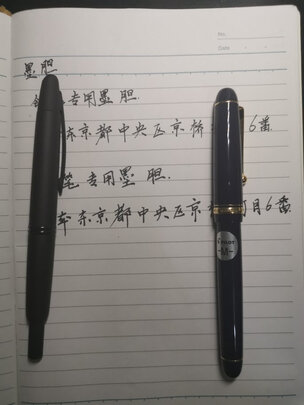 No.
Date
墨胆
专用墨胆.
东京都中央区京桥 6番
笔专用墨胆.
东京都中央区京 6番
PILOT
-M-